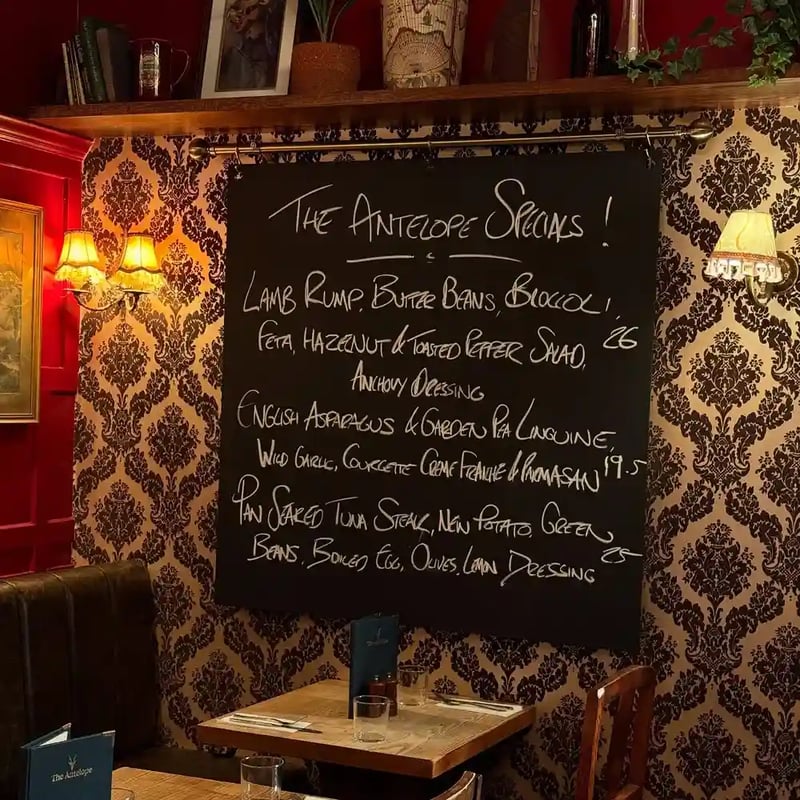 The Antelope Specials!
Lamb Rump, Butter Beans, Broccoli,
Feta, Hazelnut & Toasted Pepper Salad, 26
Anchovy Dressing
English Asparagus & Garden Pea Linguine,
Wild Garlic, Courgette Creme Fraiche & Parmasan 19.5
Pan Seared Tuna Steak, New Potato, Green
Beans, Boiled Egg, Olives, Lemon Dressing 25
The Antelope
The Antelope